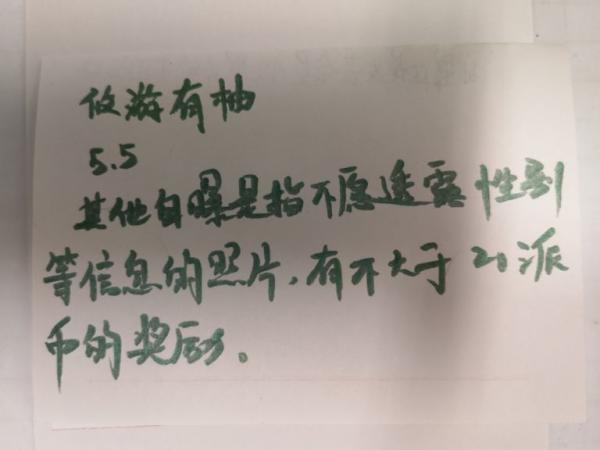 攸游有柚
5.5
其他自曝是指不愿透露性别
等信息的照片，有不大于20派
币的奖励。